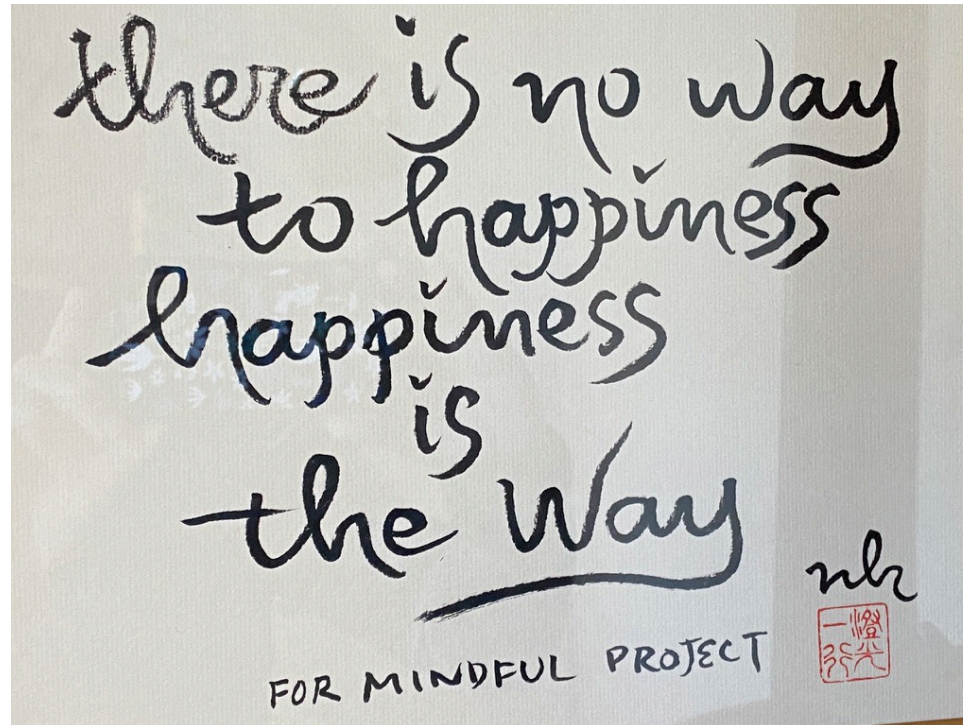 there is no way
to happiness
happiness
is
the way
nh
澄光
一行
FOR MINDFUL PROJECT